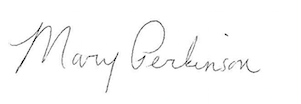 Mary Perkinson